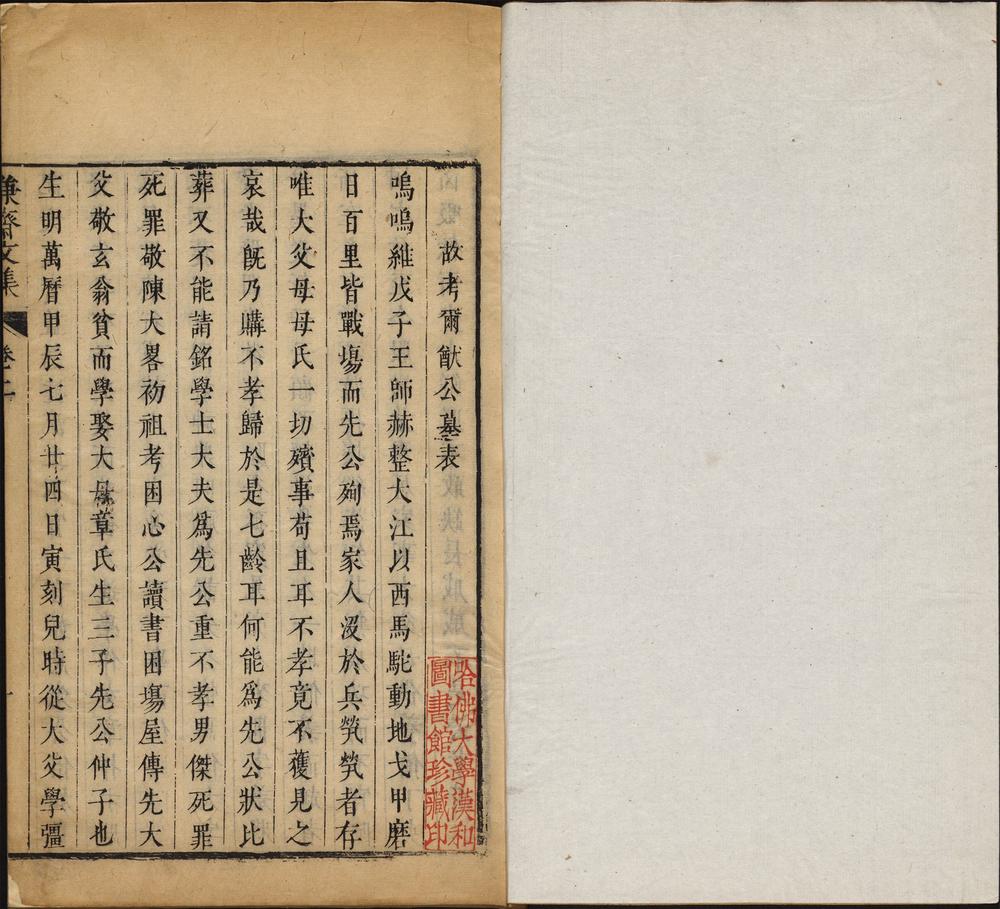 故考爾猷公墓表
嗚嗚維戊子王師赫整大江以西馬駝動地戈甲磨
日百里皆戰塲而先公殉焉家人沒於兵煢煢者存
唯大父母母氏一切殯事苟且耳不孝竟不獲見之
哀哉旣乃購不孝歸於是七齡耳何能爲先公狀比
葬又不能請銘學士大夫爲先公重不孝男傑死罪
死罪敬陳大畧初祖考困心公讀書困塲屋傳先大
父敬玄翁貧而學娶大母章氏生三子先公仲子也
生明萬曆甲辰七月廿四日寅刻兒時從大父學彊
齋文集
卷二
哈佛大學漢和
圖書館珍藏印